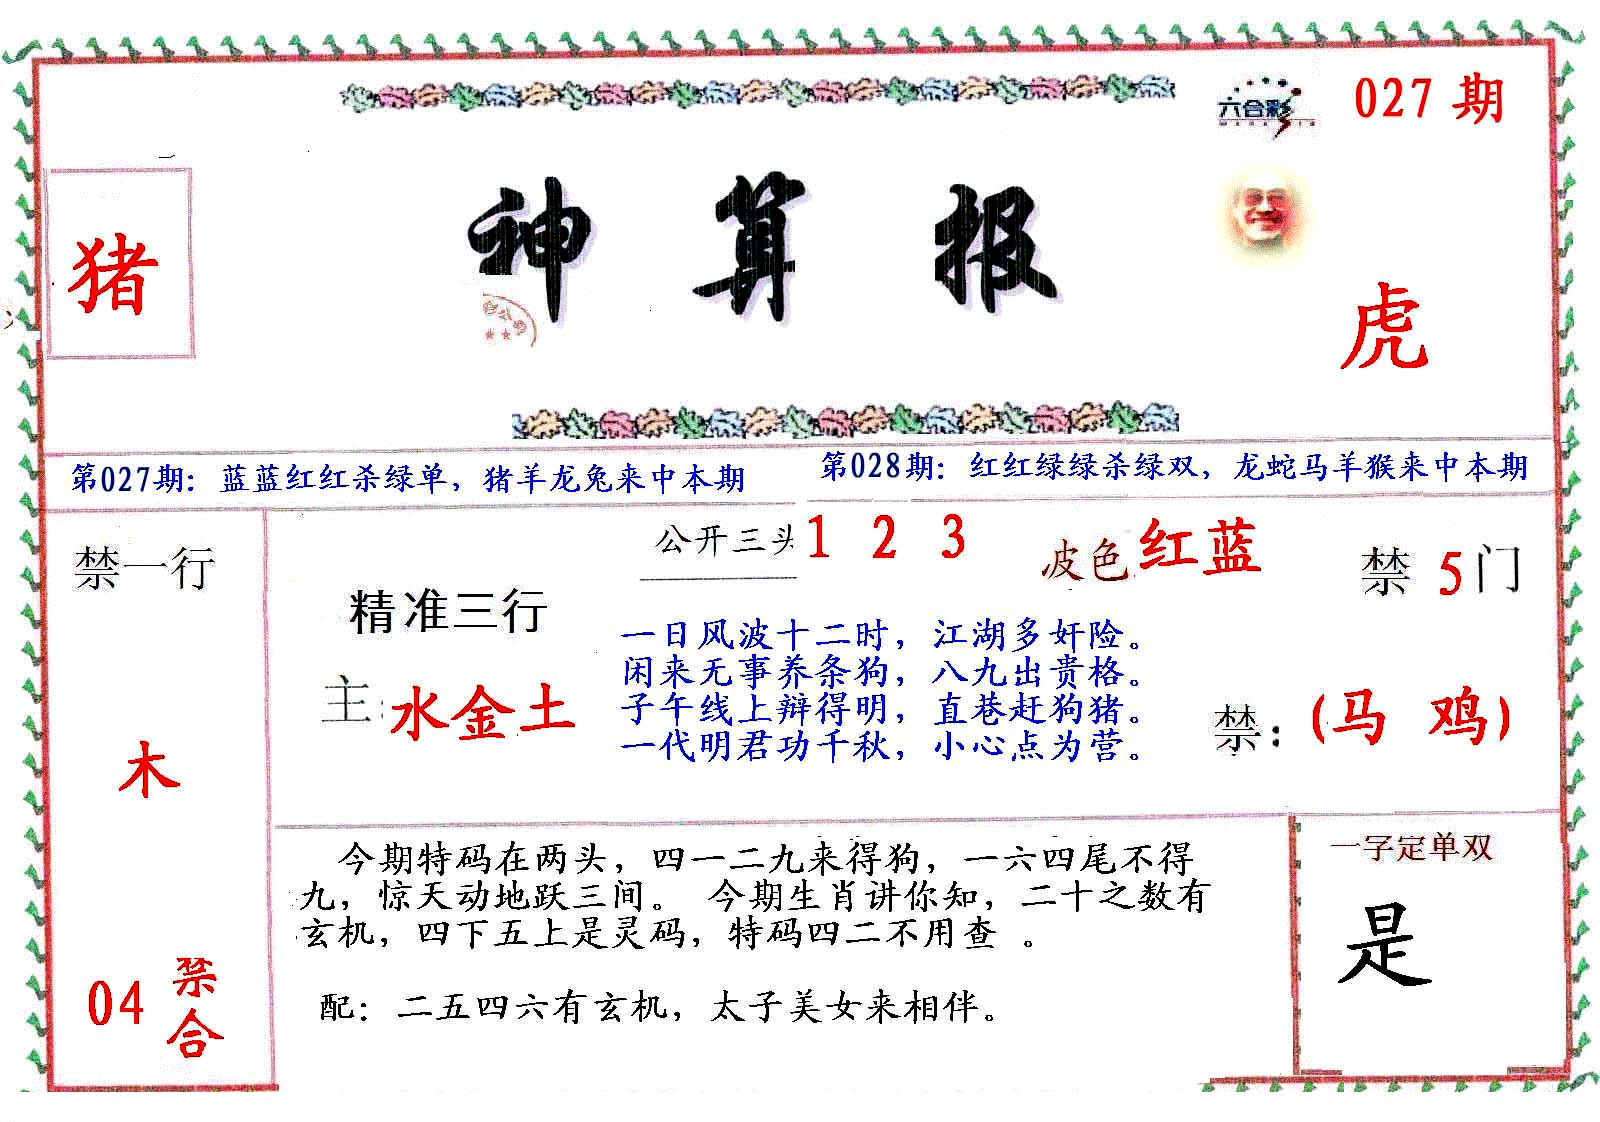 六合彩
027 期
猪
神算报
虎
第027期：蓝蓝红红杀绿单，猪羊龙兔来中本期
第028期：红红绿绿杀绿双，龙蛇马羊猴来中本期
禁一行
木
04 禁合
精准三行
主：水金土
公开三头 1 2 3
波色 红蓝
禁 5 门
一日风波十二时，江湖多奸险。
闲来无事养条狗，八九出贵格。
子午线上辩得明，直巷赶狗猪。
一代明君功千秋，小心点为营。
禁：(马 鸡)
今期特码在两头，四一二九来得狗，一六四尾不得
九，惊天动地跃三间。 今期生肖讲你知，二十之数有
玄机，四下五上是灵码，特码四二不用查 。
配：二五四六有玄机，太子美女来相伴。
一字定单双
是